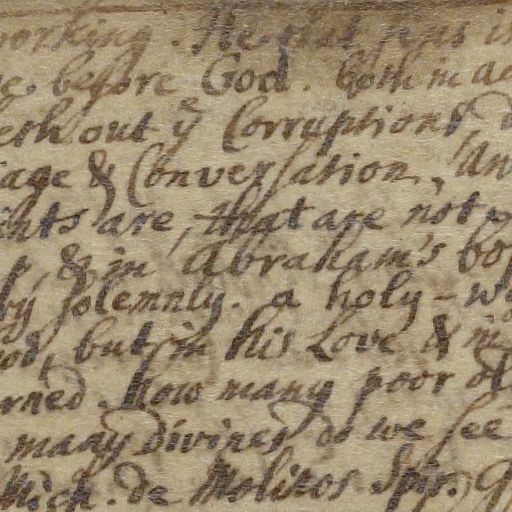 working. He that
before God. both in
out yͤ Corruptions
& Conversation, An
are, that are not
& in Abraham's bo
by solemnly. a holy-
but in his Love & in
rned. how many poor ol
many divines do we see
Mich. de Molinos. Spir. G